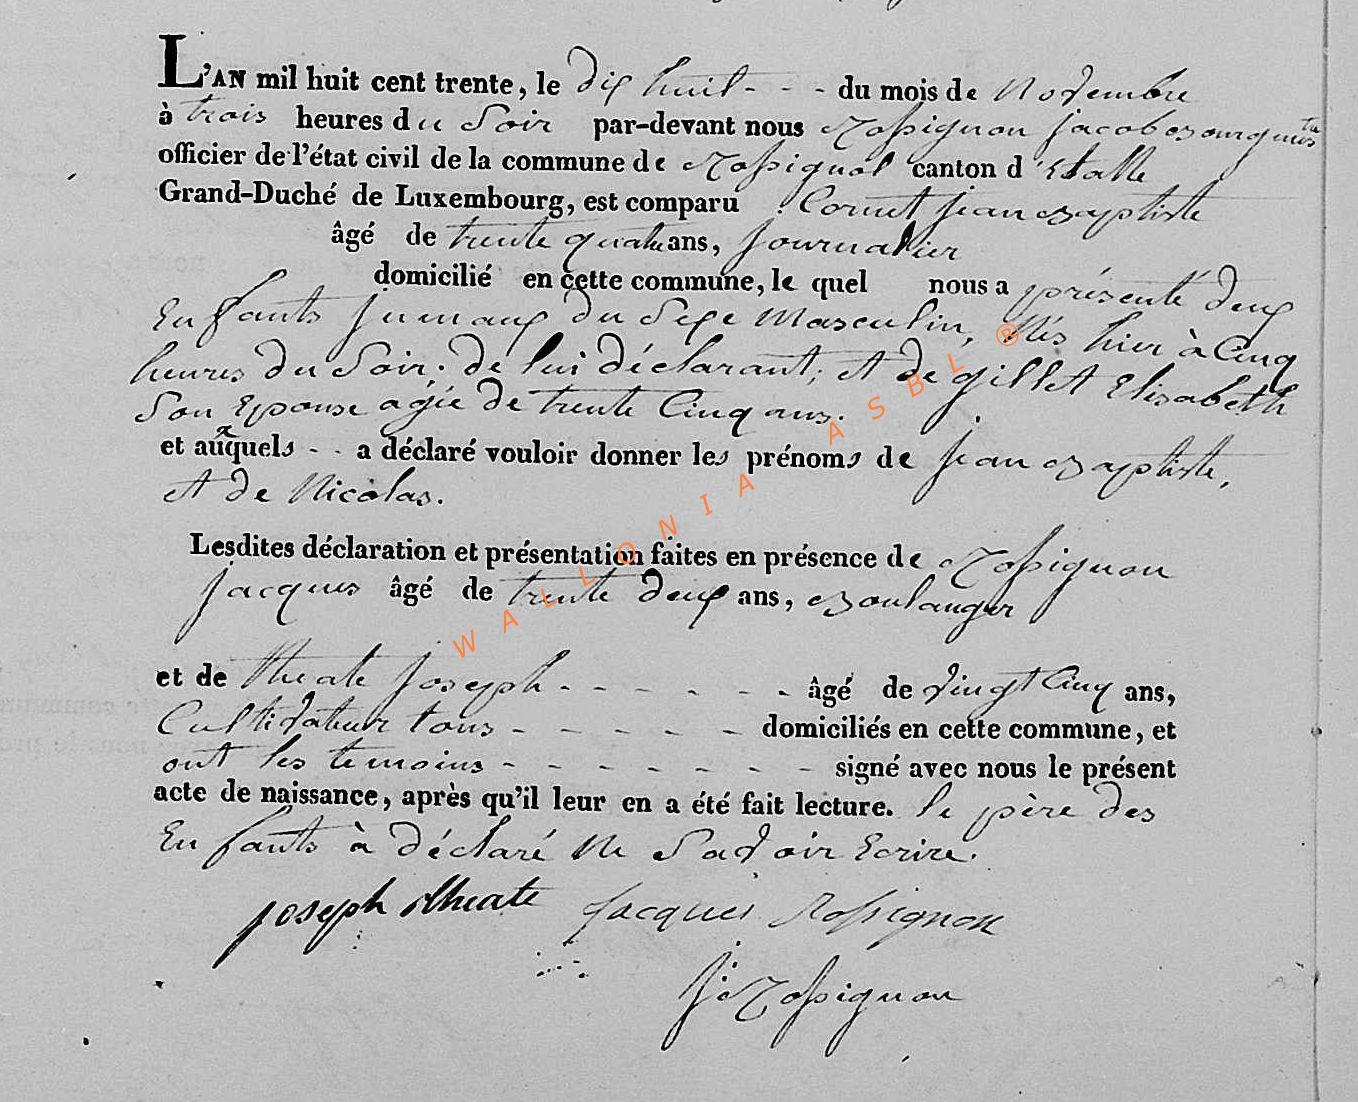 L'AN mil huit cent trente, le dix huit - - - du mois de Novembre
à trois heures du Soir par-devant nous Rossignon Jacob Bourguemestre
officier de l'état civil de la commune de Rossignol canton d'Etalle
Grand-Duché de Luxembourg, est comparu Cornet Jean Baptiste
âgé de trente quatre ans, Journalier
domicilié en cette commune, le quel nous a présenté deux
Enfants Jumaux du Sexe Masculin, Nés hier à Cinq
heures du Soir. de lui déclarant, et de Gillet Elisabeth
Son Epouse agée de trente Cinq ans.
et auxquels - - a déclaré vouloir donner les prénoms de Jean Baptiste,
et de Nicolas.
Lesdites déclaration et présentation faites en présence de Rossignon
Jacques âgé de trente deux ans, Boulanger
et de Theate Joseph - - - - - - - âgé de vingt Cinq ans,
Cultivateur tous - - - - - - domiciliés en cette commune, et
ont les temoins - - - - - - - - signé avec nous le présent
acte de naissance, après qu'il leur en a été fait lecture. le père des
Enfants à déclaré Ne Savoir Ecrire.
joseph theate Jacques Rossignon
J: Rossignon
WALLONIA ASBL ®